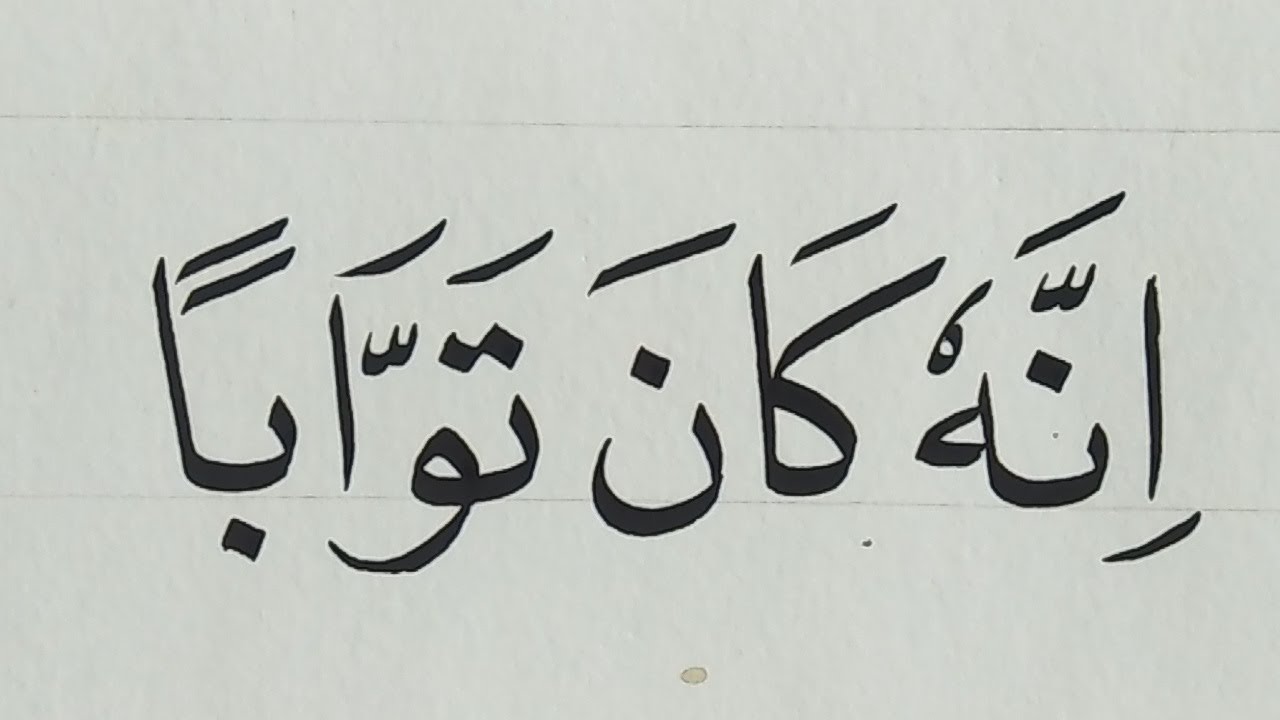 اِنَّهٗ كَانَ تَوَّاباً